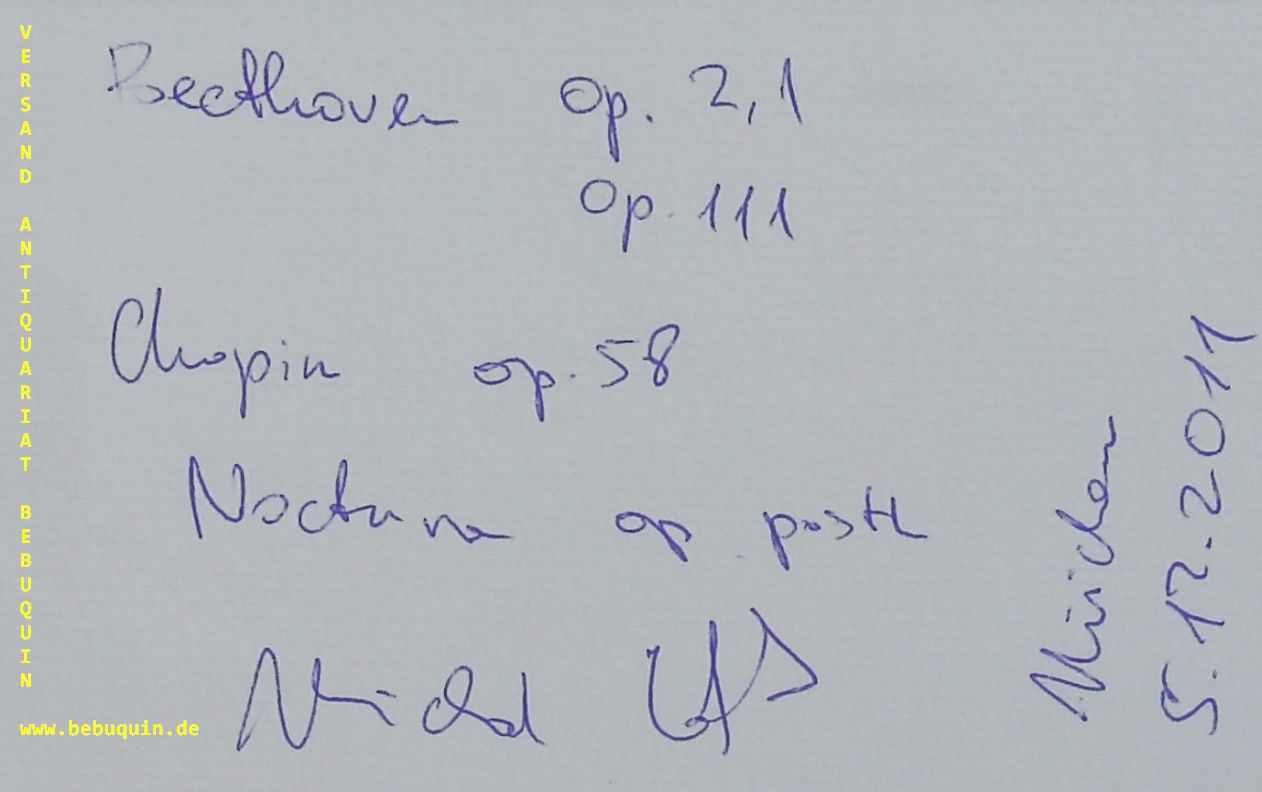 VERSAND ANTIQUARIAT BEBUQUIN
Beethoven Op. 2,1
Op. 111
Chopin op. 58
Nocturne op. posth
München
5.12.2011
www.bebuquin.de